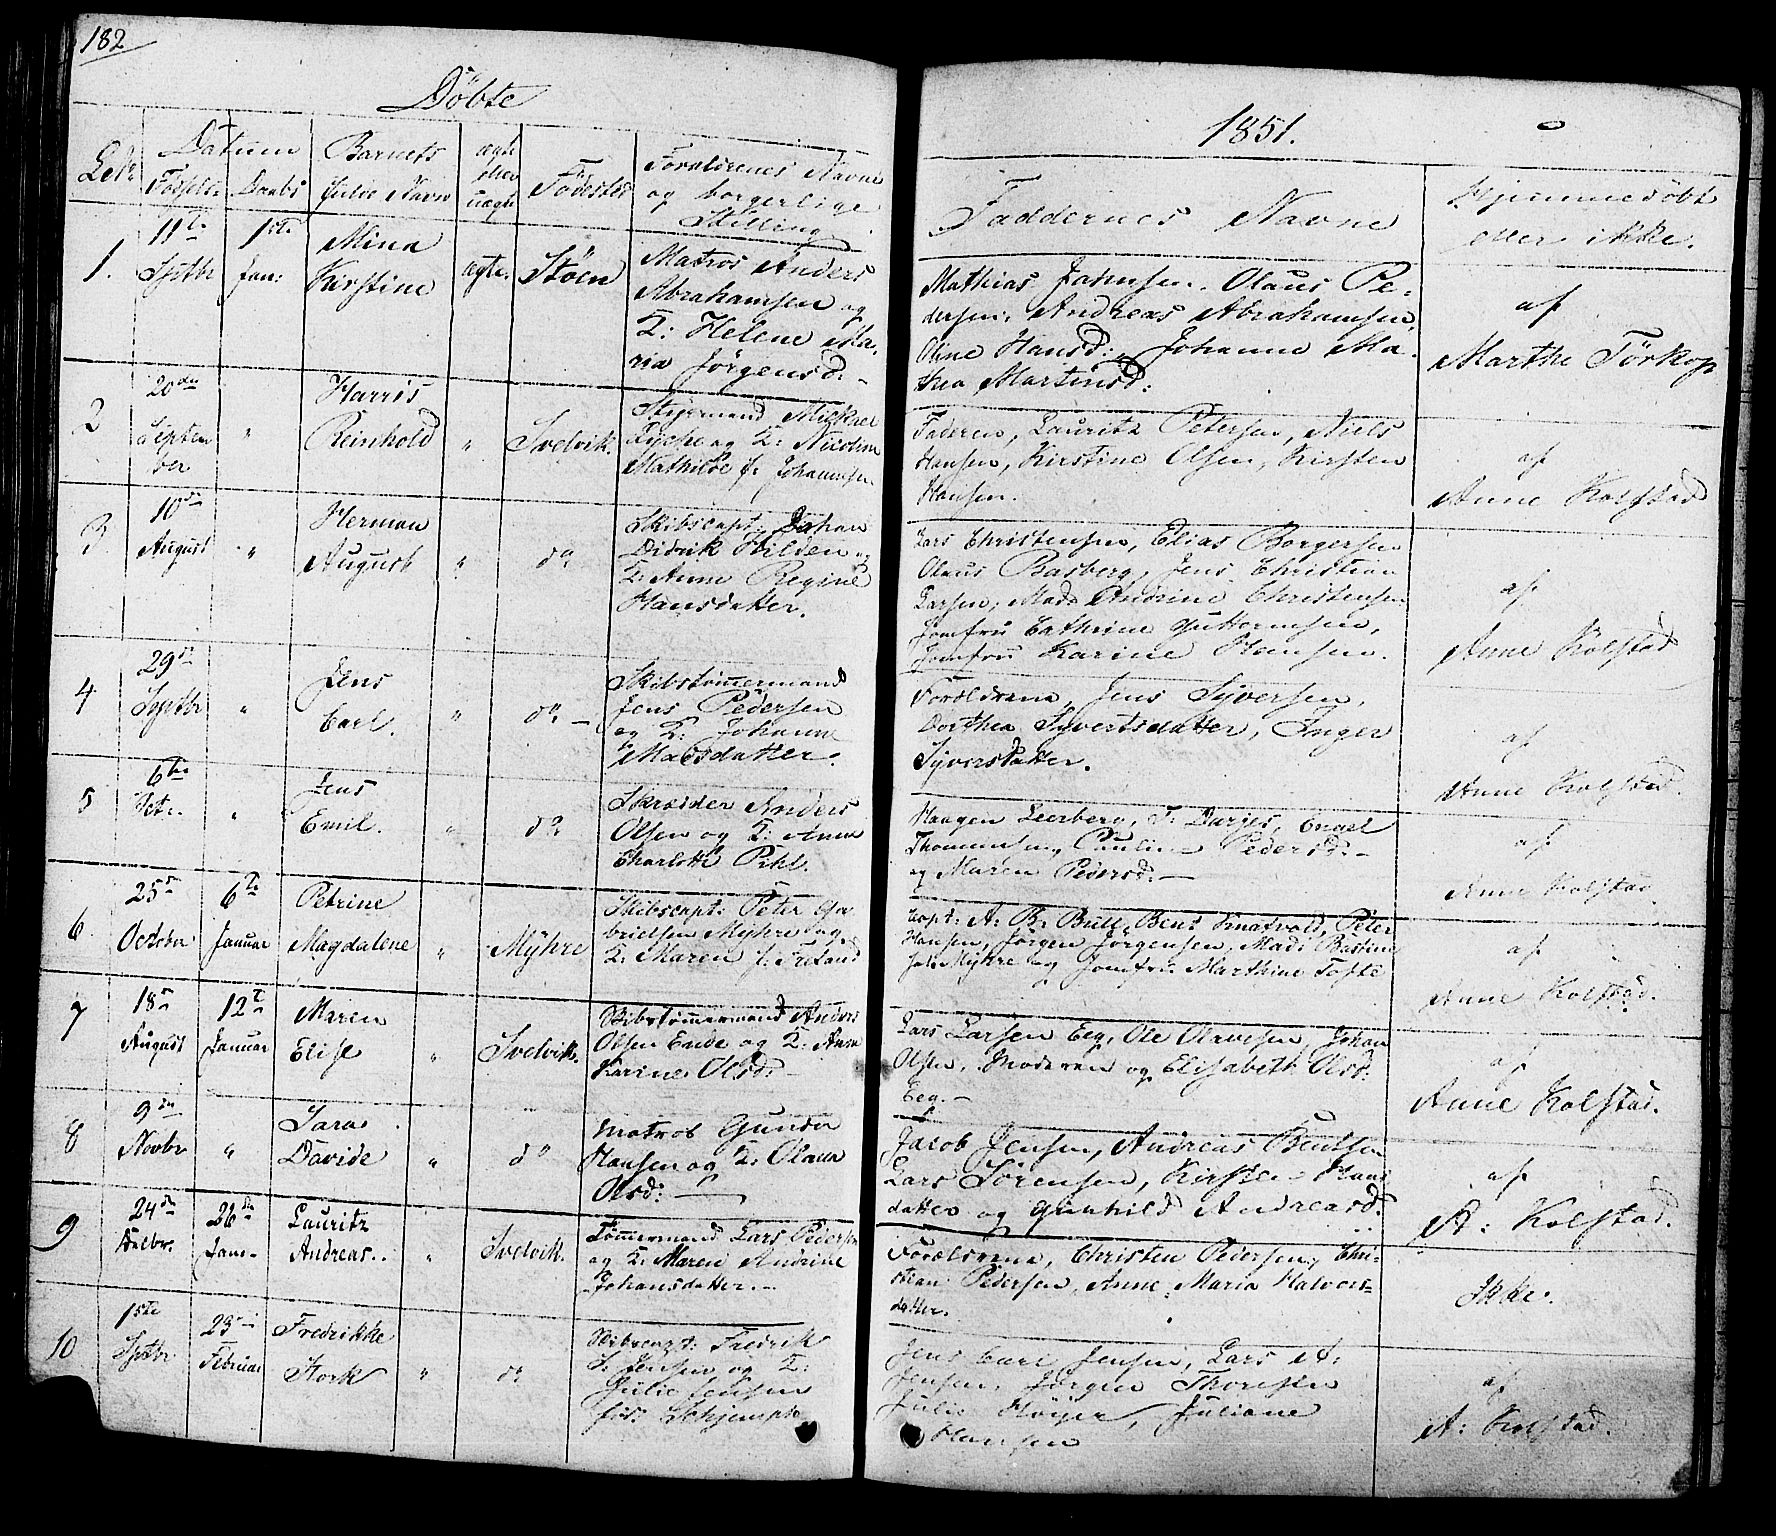 182
Döbte
1851.
No
Datum
Fødsels Daabs
Barnets
fulde Navn
ægte
eller
uægte
Födested
Forældrenes Navne
og borgerlige
Stilling
Faddernes Navne
Hjemmedöbt
eller ikke.
1.
11te
Septbr
1ste
Jan:
Mina
Kirstine
ægte.
Stöen
Matros Anders
Abrahamsen og
K: Helene Ma,
ria Jörgensd: -
Mathias Jahnsen. Olaus Pe-
dersen, Andreas Abrahamsen,
Oline Hansd:, Johanne Ma.
thea Martinsd:
af
Marthe Törkop
2
20de
Septem
ber
"
Harris
Reinhold
"
Svelvik.
Styrmand Mickael
Rÿche og K: Nicoline
Mathilde f. Johannsen
Faderen, Lauritz Petersen, Niels
Hansen, Kirstine Olsen, Kirsten
Hansen.
af
Anne Kolstad
3.
10de
August
"
Herman
August
"
do
Skibscapt: Johan
Didrik Hilden og
K: Anne Regine
Hansdatter.
Lars Christensen, Elias Borgersen
Olaus Basberg, Jens Christian
Larsen, Mad. Andrine Christensen
Jomfru Cathrine Guttormsen,
Jomfru Karine Hansen.
af
Anne Kolstad
4.
29de
Septbr
"
Jens
Carl.
"
do -
Skibstömmermand
Jens Pedersen
og K: Johanne
Madsdatter.
Forældrene, Jens Syversen,
Dorthea Syvertsdatter, Inger
Syversdatter.
af
Anne Kolstad.
5
6te
Octr.
"
Jens
Emil.
"
do
Skrædder Anders
Olsen og K: Anne
Charlotte Pihl.
Haagen Leerberg, T: Darjes, Engel
Thommesen, Pauline Pedersd: -
og Maren Pedersd: -
af
Anne Kolstad
6
25de
October
6te
Januar
Petrine
Magdalene
"
Mÿhre
Skibscapt: Peter Ga
brielsen Mÿhre og
K: Maren f: Tretand
Capt: A: B: Bull, Bent Knatvold, Peter
Hansen, Jörgen Jörgensen, Mad: Bastine
Mÿhre og Jomfru Marthine Tofte
af
Anne Kolstad.
7
18de
August
12te
Januar
Maren
Elise
"
Svelvik.
Skibstömmermand Anders
Olsen Ende og K: Anne
Karine Olsd: -
Lars Larsen Eeg, Ole Olavesen, Johan
Olsen, Moderen og Elisabeth Olsd:
Eeg. -
af
Anne Kolstad.
8
9de
Novbr
"
Sara
Davide
"
do
Matros Gunder
Hansen og K: Olava
Olsd: -
Jacob Jensen, Andreas Bentsen
Lars Sörensen, Kirsten Hans
datter og Gunhild Andreasd.
af
A: Kolstad.
9
24de
26de
Jan-
Lauritz
Andreas.
"
Svelvik.
Tömmermand Lars Pedersen
og K: Maren Andrine
Johansdatter. -
Forældrene, Christen Pedersen, Chri-
stian Pedersen, Anne Maria Halvors-
datter.
Ikke.
10
1ste
Septbr
23de
Februar
Fredrikke
Stork
"
do
Skibscapt: Fredrik
S. Jensen og K:
Julie Jensen
föd: Schjempke
Jens Carl Jensen, Lars A:
Jensen, Jörgen Thoresen
Julie Höyer, Juliane
Hansen
af
A: Kolstad.